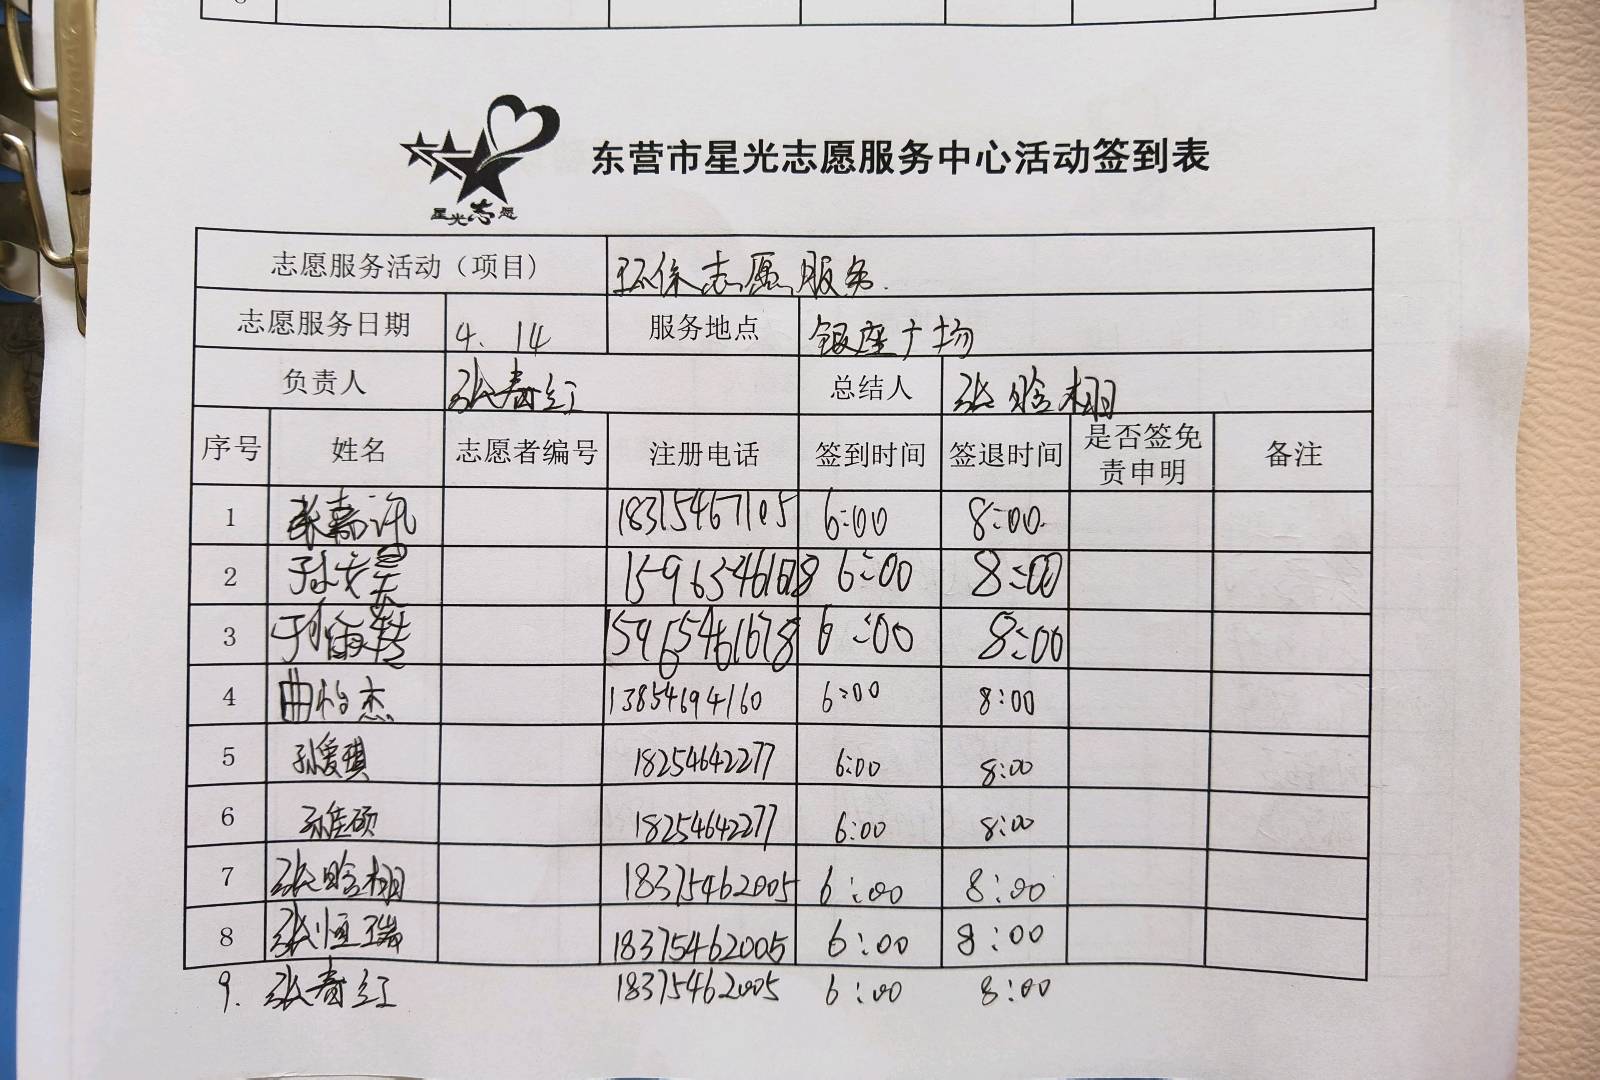 星光志愿
东营市星光志愿服务中心活动签到表
志愿服务活动（项目） 环保志愿服务.
志愿服务日期 4. 14 服务地点 银座广场
负责人 张春红 总结人 张晗栩
序号 姓名 志愿者编号 注册电话 签到时间 签退时间 是否签免责申明 备注
1 张嘉讯 18315467105 6:00 8:00.
2 15965461678 6:00 8:00
3 15965461678 6:00 8:00
4 曲怡杰 13854694160 6:00 8:00
5 孙爱琪 18254642277 6:00 8:00
6 孙佳硕 18254642277 6:00 8:00
7 张晗栩 18375462005 6:00 8:00
8 张恒瑞 18375462005 6:00 8:00
9. 张春红 18375462005 6:00 8:00